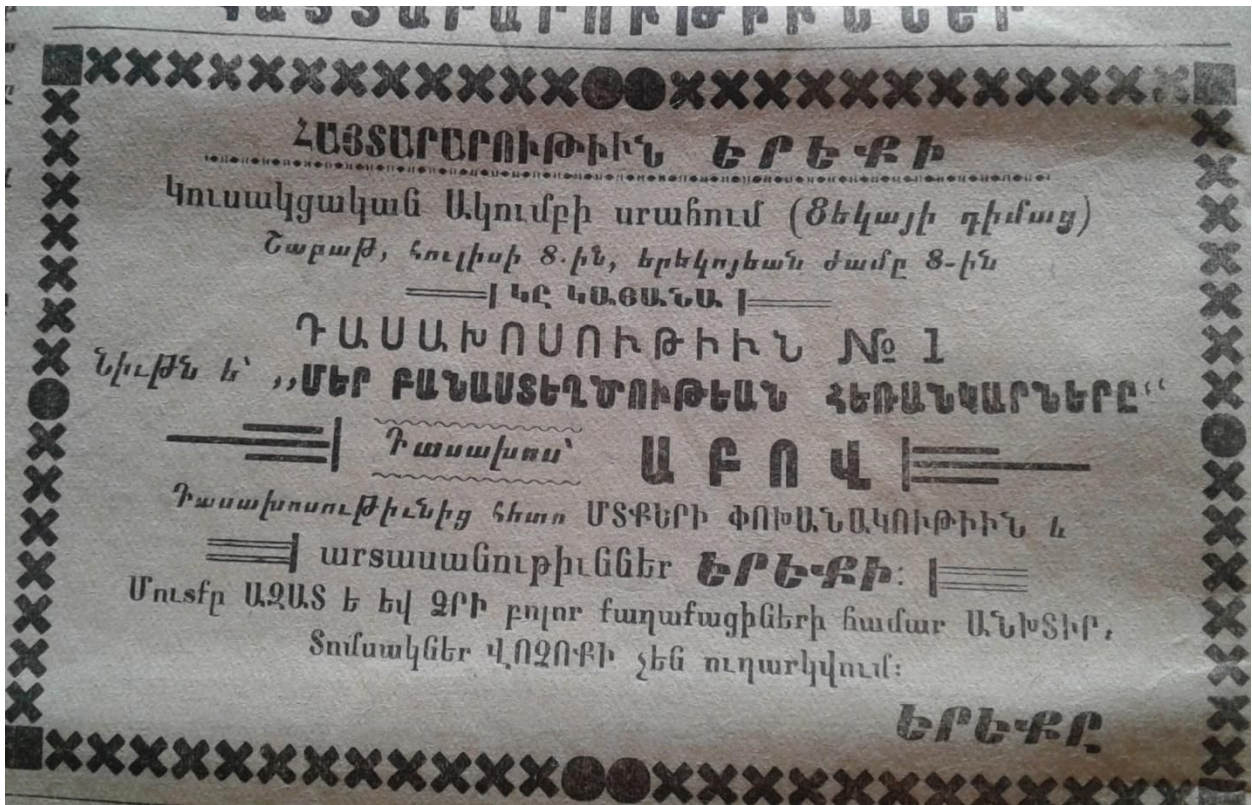 ՀԱՅՏԱՐԱՐՈՒԹԻՒՆՆԵՐ
ՀԱՅՏԱՐԱՐՈՒԹԻՒՆ ԵՐԵՔԻ
Կուսակցական Ակումբի սրահում (Ցեկայի դիմաց)
Շաբաթ, հուլիսի 8-ին, երեկոյեան ժամը 8-ին
ԿԸ ԿԱՅԱՆԱ
ԴԱՍԱԽՈՍՈՒԹԻՒՆ № 1
Նիւթն է՝ ,,ՄԵՐ ԲԱՆԱՍՏԵՂԾՈՒԹԵԱՆ ՀԵՌԱՆԿԱՐՆԵՐԸ“
Դասախօս՝ ԱԲՈՎ
Դասախոսութիւնից հետո ՄՏՔԵՐԻ ՓՈԽԱՆԱԿՈՒԹԻՒՆ և
արտասանութիւններ ԵՐԵՔԻ:
Մուտքը ԱԶԱՏ Ե ԵՎ ՁՐԻ բոլոր քաղաքացիների համար ԱՆԽՏԻՐ,
Տոմսակներ ՎՈՉՈՔԻ չեն ուղարկվում:
ԵՐԵՔԸ